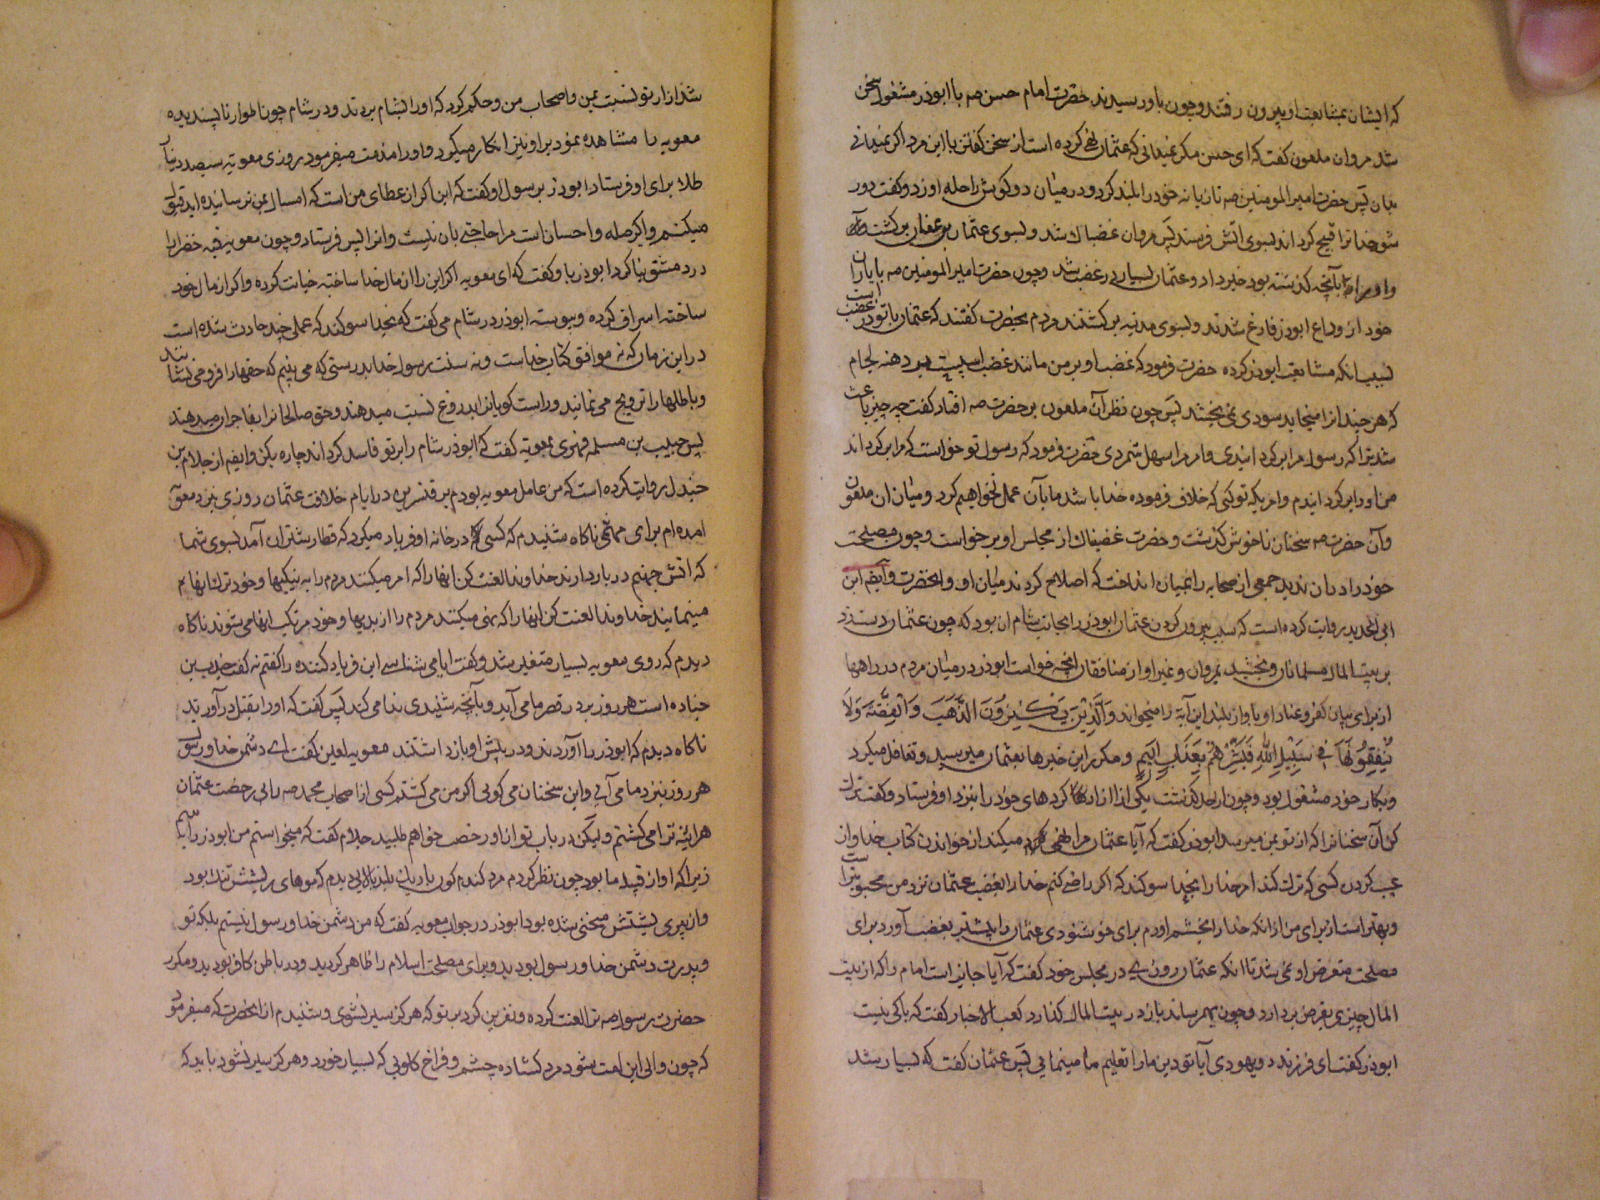 که ایشان بمشایعت او بیرون رفتند و چون باو رسیدند حضرت امام حسن صه با ابوذر مشغول سخن
شد مروان ملعون گفت که ای حسن مگر نمیدانی که عثمان نهی کرده است از سخن گفتن با این مرد اگر نمیدانی
بدان پس حضرت امیر المومنین صه تازیانه خود را بلند کرد و در میان دو گوش راحله او زد و گفت دور
شو خدا ترا قبیح گرداند بسوی آتش فرستد پس مروان غضبناک شد و بسوی عثمان بن عفان برگشت
و او را بآنچه گذشته بود خبر داد و عثمان بسیار در غضب شد و چون حضرت امیر المومنین صه با یاران
خود از وداع ابوذر فارغ شدند و بسوی مدینه برگشتند مردم بحضرت گفتند که عثمان با تو در غضب است
بسبب انکه مشایعت ابوذر کرده حضرت فرمود که غضب او بر من مانند غضب اسپیست بر دهنه لجام
که هر چند انرا میخاید سودی نمی بخشد پس چون نظر آن ملعون بر حضرت صه افتاد گفت چه چیز باعث
شد ترا که رسول مرا برگردانیدی و امر مرا سهل شمردی حضرت فرمود که رسول تو خواست که مرا برگرداند
من او را برگردانیدم و امریکه تو کنی که خلاف فرموده خدا باشد ما بآن عمل نخواهیم کرد و میان ان ملعون
وآن حضرت صه سخنان ناخوش گذشت و حضرت غضبناک از مجلس او برخواست و چون مصلحت
خود را در ان ندید جمعی از صحابه را بمیان انداخت که اصلاح کردند میان او و انحضرت و ایضا ابن
ابی الحدید روایت کرده است که سبب بیرون کردن عثمان ابوذر را بجانب شام ان بود که چون عثمان دست زد
بر بیت المال مسلمانان و بخشید بمروان و غیر او از منافقان انچه خواست ابوذر در میان مردم در راهها
از برای بیان کفر و عناد او باواز بلند این آیة را میخواند وَالَّذِینَ یَکْنِزُونَ الذَّهَبَ وَالْفِضَّةَ وَلَا
یُنْفِقُونَهَا فِی سَبِیلِ اللهِ فَبَشِّرْهُمْ بِعَذَابٍ اَلِیمٍ و مکرر این خبرها بعثمان میرسید و تغافل میکرد
و بکار خود مشغول بود و چون از حد گذشت یکی از آزاد کردهای خود را بنزد او فرستاد و گفت ترک
کن آن سخنانرا که از تو بمن میرسد ابوذر گفت که آیا عثمان مرا نهی میکند از خواندن کتاب خدا و از
عیب کردن کسی که ترک کند امر خدا را بخدا سوکند که اگر راضی کنم خدا را بغضب عثمان نزد من محبوبتر است
و بهتر است از برای من از انکه خدا را بخشم اورم برای خوشنودی عثمان را بیشتر بغضب آورد برای
مصلحت متعرض او نمی شد تا انکه عثمان روزی در مجلس خود گفت که آیا جایز است امام را که از بیت
المال چیزی بقرض بردارد و چون بهم رساند باز در بیت المال گذارد کعب الاخبار گفت که باکی نیست
ابوذر گفت ای فرزند دو یهودی آیا تو دین ما را تعلیم ما مینمایی پس عثمان گفت که بسیار شد
شد ازار تو نسبت بمن و اصحاب من و حکم کرد که او را بشام بردند و در شام چون اطوار ناپسندیده
معویه را مشاهده نمود بر او نیز انکار میکرد و او را مذمت میفرمود روزی معویه سیصد دینار
طلا برای او فرستاد ابوذر بر سول او گفت که این اگر از عطای من است که امسال بمن نرسانیده اید قبول
میکنم و اگر صله و احسان است مرا حاجتی بان نیست و انرا پس فرستاد و چون معویه قبه خضرا را
در دمشق بنا کرد ابوذر باو گفت که ای معویه اگر این را از مال خدا ساخته خیانت کرده و اگر از مال خود
ساخته اسراف کرده و پیوسته ابوذر در شام می گفت که بخدا سوکند که عملی چند حادث شده است
در این زمان که نه موافق کتاب خداست و نه سنت رسول خدا بدرستی که می بینم که حقها را فرو می نشانند
و باطلها را ترویج می نمایند و راست گویانرا بدروغ نسبت میدهند و حق صالحانرا بفاجران میدهند
پس حبیب بن مسلمه فهری بمعویه گفت که ابوذر شام را بر تو فاسد گرداند چاره بکن و ایضا از جلام بن
جندل روایت کرده است که من عامل معویه بودم بر قنسرین در ایام خلافت عثمان روزی نزد معویه
امده ام برای مهمی ناگاه شنیدم که کسی در خانه او فریاد میکرد که قطار شتران آمد بسوی شما
که اتش جهنم در بار دارند خداوندا لعنت کن انها را که امر میکنند مردم را به نیکیها و خود ترک انها
مینمایند خداوندا لعنت کن انها را که نهی میکنند مردم را از بدیها و خود مرتکب انها می شوند ناگاه
دیدم که روی معویه بسیار متغیر شد و گفت ایا می شناسی این فریاد کننده را گفتم نه گفت جندب بن
جناده است هر روز بر در قصر ما می آید و بآنچه شنیدی ندا می کند پس گفت که او را بقتل درآورید
ناگاه دیدم که ابوذر را آوردند و در پیش او بازداشتند معویه لعین گفت ای دشمن خدا و رسول
هر روز بنزد ما می آیی و این سخنان می گویی اگر من می کشتم کسی از اصحاب محمد صه را بی رخصت عثمان
هر اینه ترا می کشتم و لیکن در باب تو از او رخصت خواهم طلبید جلام گفت که میخواستم من ابوذر را ببینم
زیرا که او از قبیله ما بود چون نظر کردم مرد گندم گون باریک بلند بالایی دیدم که موهای ریشش تنک بود
و از پیری پشتش منحنی شده بود ابوذر در جواب معویه گفت که من دشمن خدا و رسول نیستم بلکه تو
و پدرت دشمن خدا و رسول بودید و برای مصلحت اسلام را ظاهر کردید و در باطن کافر بودید و مکرر
حضرت رسول صه ترا لعنت کرده و نفرین کرد بر تو که هرگز سیر نشوی و شنیدم از انحضرت که میفرمود
که چون والی این امت شود مرد گشاده چشم و فراخ گلویی که بسیار خورد و هرگز سیر نشود باید که